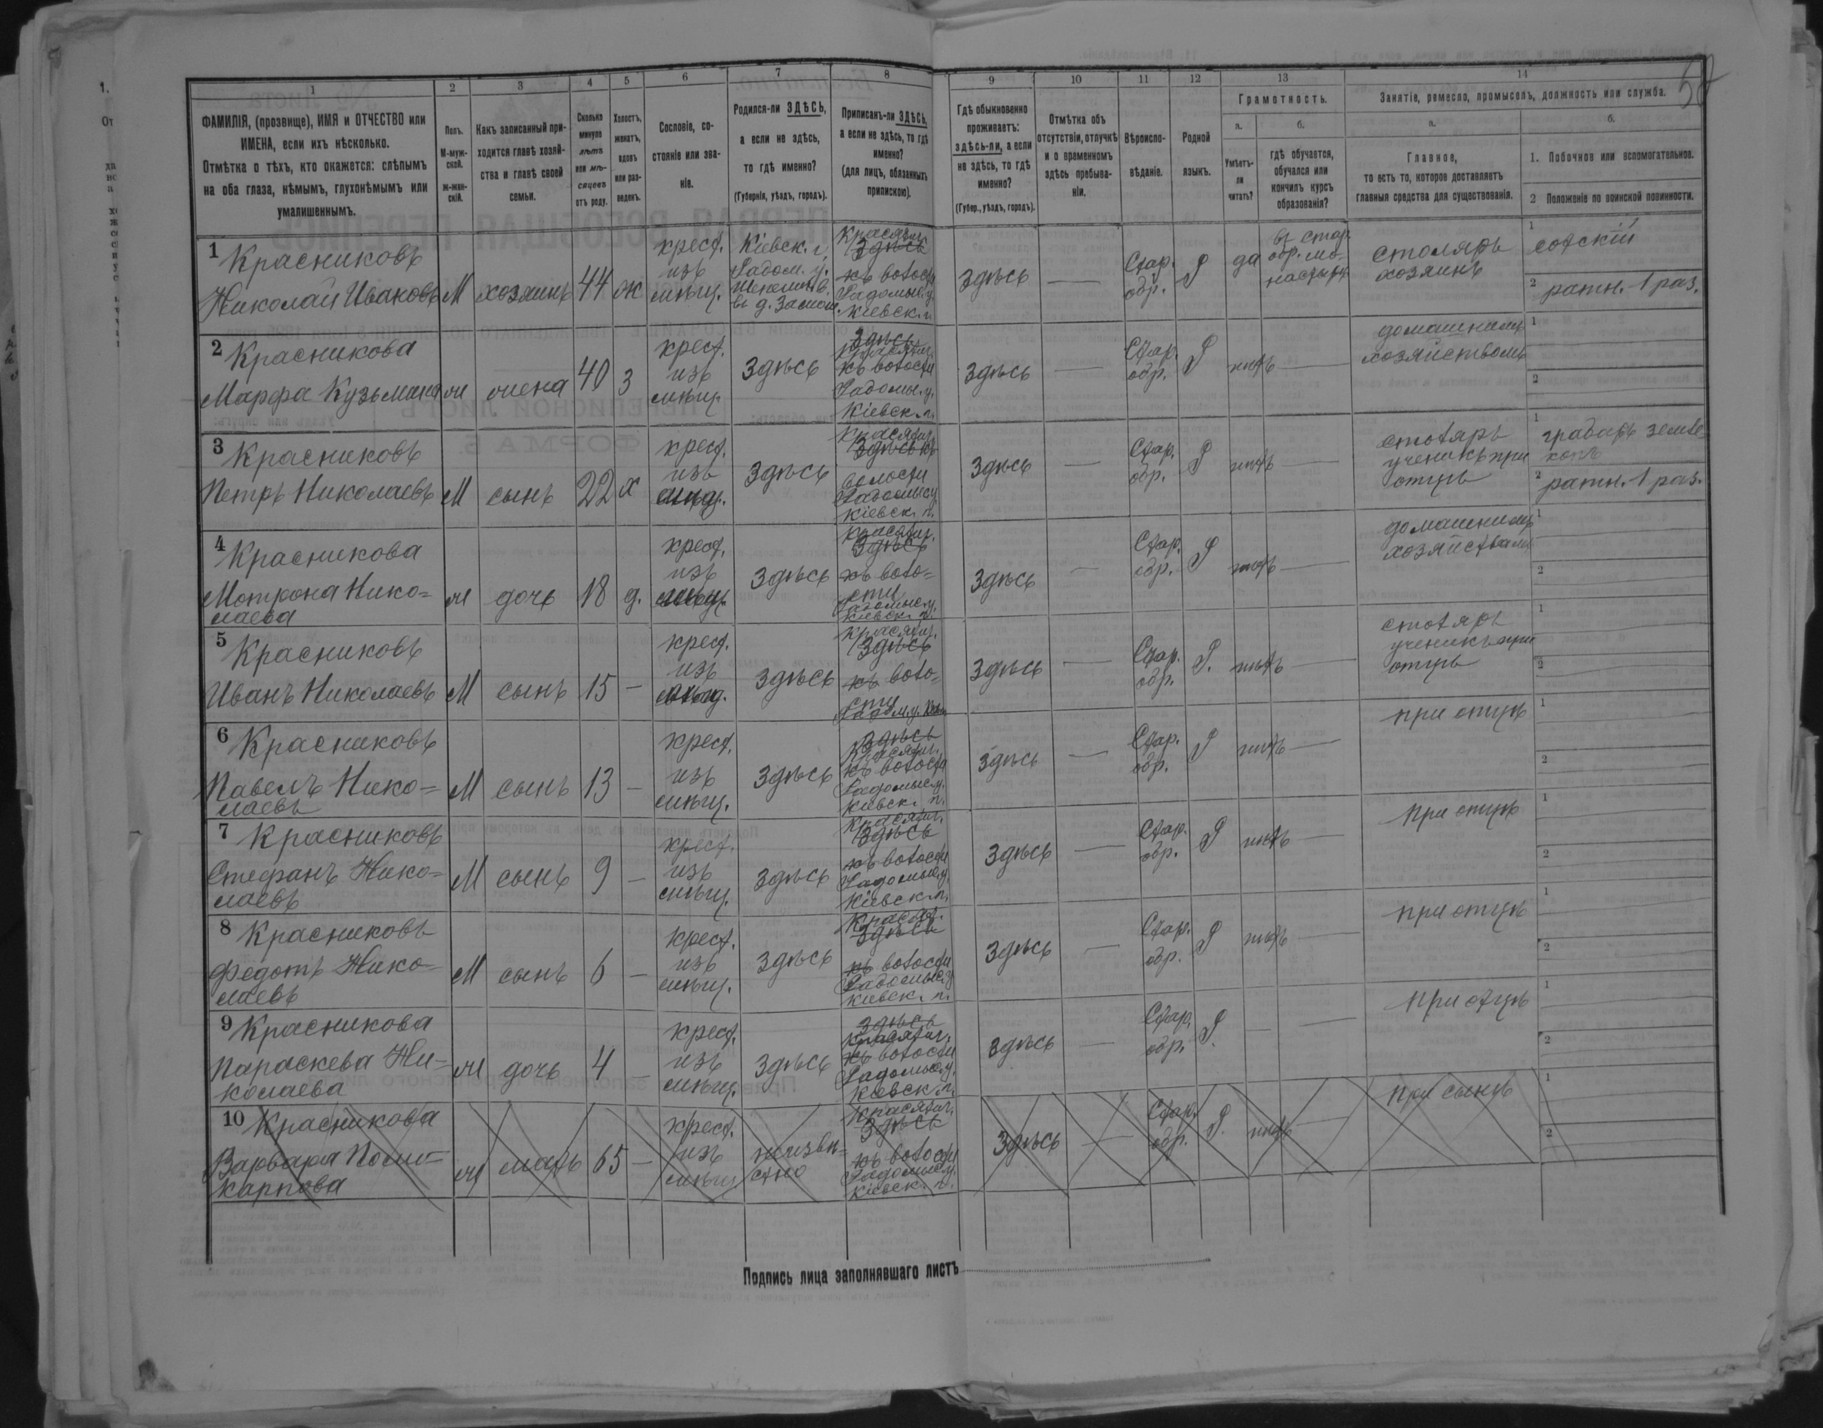 1
2
3
4
5
6
7
8
9
10
11
12
13
14
58
ФАМИЛІЯ, (прозвище), ИМЯ и ОТЧЕСТВО или
ИМЕНА, если ихъ нѣсколько.
Отмѣтка о тѣхъ, кто окажется: слѣпымъ
на оба глаза, нѣмымъ, глухонѣмымъ или
умалишеннымъ.
Полъ.
М-муж-
ской.
ж-жен-
скій.
Какъ записанный при-
ходится главѣ хозяй-
ства и главѣ своей
семьи.
Сколько
минуло
лѣтъ
или мѣ-
сяцевъ
отъ роду.
Холостъ,
женатъ,
вдовъ
или раз-
веденъ.
Сословіе, со-
стояніе или зва-
ніе.
Родился-ли ЗДѢСЬ,
а если не здѣсь,
то гдѣ именно?
(Губернія, уѣздъ, городъ).
Приписанъ-ли ЗДѢСЬ,
а если не здѣсь, то гдѣ
именно?
(для лицъ, обязанныхъ
припискою).
Гдѣ обыкновенно
проживаетъ:
здѣсь-ли, а если
не здѣсь, то гдѣ
именно?
(Губер., уѣздъ, городъ).
Отмѣтка объ
отсутствіи, отлучкѣ
и о временномъ
здѣсь пребыва-
ніи.
Вѣроиспо-
вѣданіе.
Родной
языкъ.
Грамотность.
а.
Умѣетъ-
ли
читать?
б.
гдѣ обучается,
обучался или
кончилъ курсъ
образованія?
Занятіе, ремесло, промыселъ, должность или служба.
а.
Главное,
то есть то, которое доставляетъ
главныя средства для существованія.
б.
1. Побочное или вспомогательное.
2 Положеніе по воинской повинности.
1 Красниковъ
Николай Иваковъ
М
хозяинъ
44
ж
крест.
изъ
мѣщ.
Кіевск. г.
Радом. у.
въ д.
Красятич.
Здѣсь
къ волости
Радомыс. у.
Кіевск. г.
здѣсь
—
Стар.
обр.
Р
да
въ стар.
обр. мо-
настырѣ
столяръ
хозяинъ
1
сотскій
2
ратн. 1 раз.
2 Красникова
Марфа Кузьмина
ж
жена
40
з
крест.
изъ
мѣщ.
Здѣсь
Здѣсь
Красятич.
къ волости
Радомы. у.
Кіевск. г.
здѣсь
—
Стар.
обр.
Р
нѣтъ
—
домашнимъ
хозяйствомъ
1
2
3 Красниковъ
Петръ Николаевъ
М
сынъ
22
х
крест.
изъ
мѣщ.
Здѣсь
Красятич.
Здѣсь къ
волости
Радомыс. у.
Кіевск. г.
здѣсь
—
Стар.
обр.
Р
нѣтъ
—
столяръ
ученикъ при
отцѣ
1
грабарь земле-
копъ
2
ратн. 1 раз.
4 Красникова
Мотрона Нико=
лаева
ж
дочь
18
д.
крест.
изъ
мѣщ.
Здѣсь
Красятич.
Здѣсь
къ воло=
сти
Радомыс. у.
Кіевск. г.
здѣсь
—
Стар.
обр.
Р
нѣтъ
—
домашнимъ
хозяйствомъ
1
2
5 Красниковъ
Иванъ Николаевъ
М
сынъ
15
—
крест.
изъ
мѣщ.
Здѣсь
Красятич.
Здѣсь
къ воло=
сти
Радом. у. Кіев.
здѣсь
—
Стар.
обр.
Р.
нѣтъ
—
столяръ
ученикъ при
отцѣ
1
2
6 Красниковъ
Павелъ Нико=
лаевъ
М
сынъ
13
—
крест.
изъ
мѣщ.
Здѣсь
Здѣсь
Красятич.
къ волости
Радомыс. у.
Кіевск. г.
здѣсь
—
Стар.
обр.
Р
нѣтъ
—
при отцѣ
1
2
7 Красниковъ
Стефанъ Нико=
лаевъ
М
сынъ
9
—
крест.
изъ
мѣщ.
Здѣсь
Красятич.
Здѣсь
къ волости
Радомыс. у.
Кіевск. г.
здѣсь
—
Стар.
обр.
Р
нѣтъ
—
при отцѣ
1
2
8 Красниковъ
Федотъ Нико=
лаевъ
М
сынъ
6
—
крест.
изъ
мѣщ.
Здѣсь
Красят.
Здѣсь
къ волости
Радомыс. у
Кіевск. г.
здѣсь
—
Стар.
обр.
Р
нѣтъ
—
при отцѣ
1
2
9 Красникова
Параскева Ни=
колаева
ж
дочь
4
—
крест.
изъ
мѣщ.
Здѣсь
Здѣсь
Красятич.
къ волости
Радомыс. у.
Кіевск. г.
здѣсь
—
Стар.
обр.
Р.
—
—
при отцѣ
1
2
10 Красникова
Варвара Поли=
карпова
ж
мать
65
—
крест.
изъ
мѣщ.
неизвѣ=
стно
Красятич.
Здѣсь
къ волости
Радомыс. у.
Кіевск. г.
Здѣсь
—
Стар.
обр.
Р.
нѣтъ
—
при сынѣ
1
2
Подпись лица заполнявшаго листъ